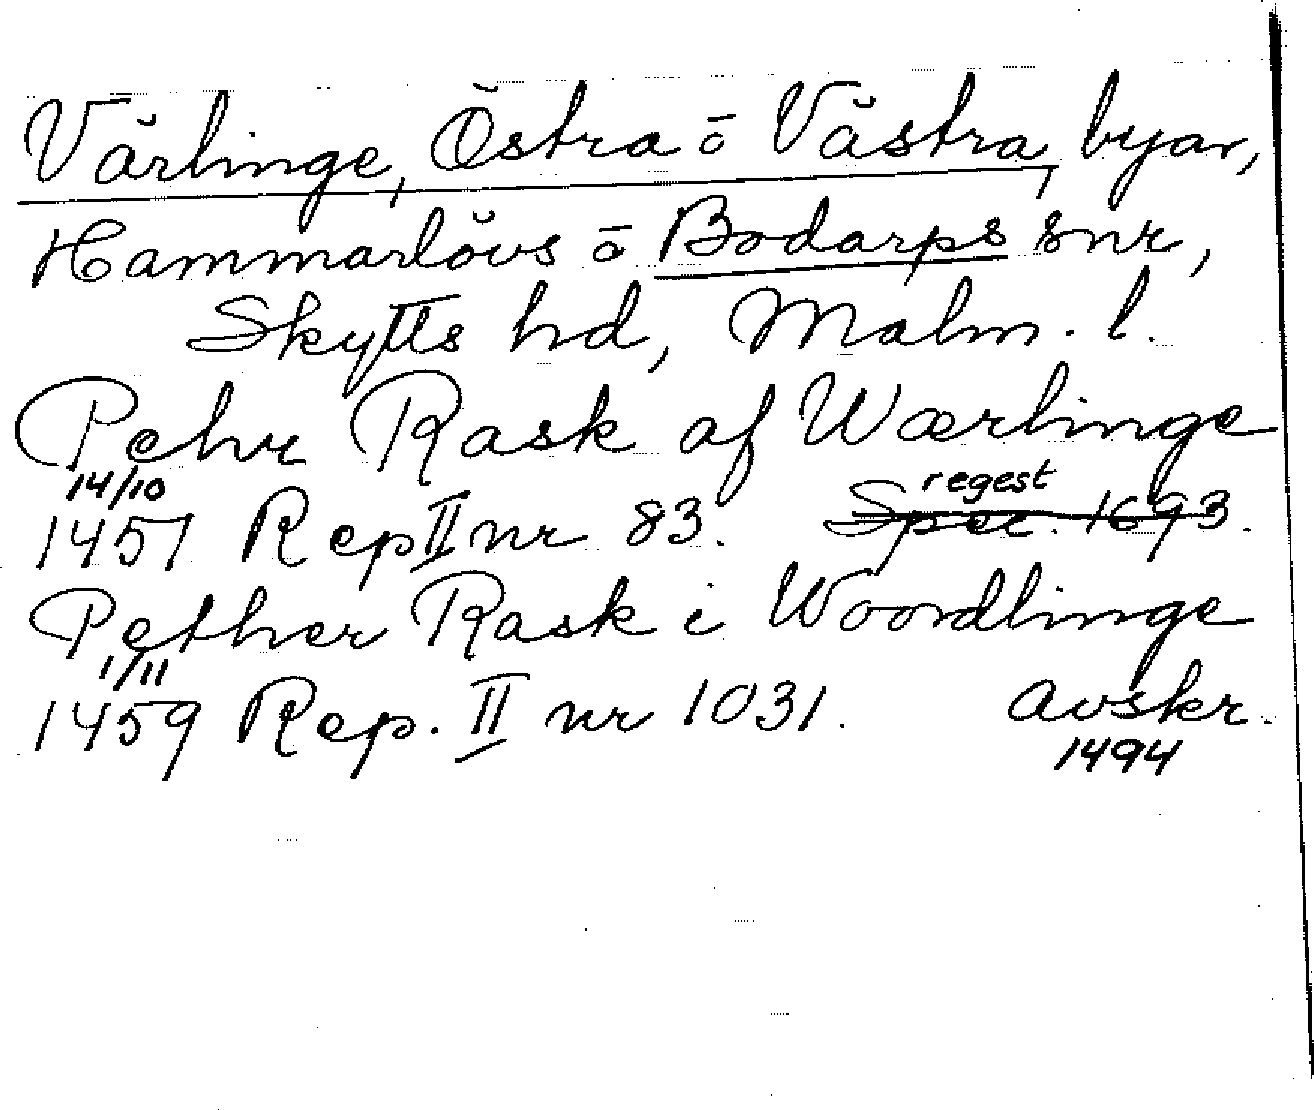 Värlinge, Östra o Västra, byar,
Hammarlövs o Bodarps snr,
Skytts hd, Malm. l.
Pehr Rask af Wærlinge
14/10 regest
1457 Rep II nr 83. Spec. 1693.
Pether Rask i Woordlinge
1/11
1459 Rep. II nr 1031. Avskr.
1494